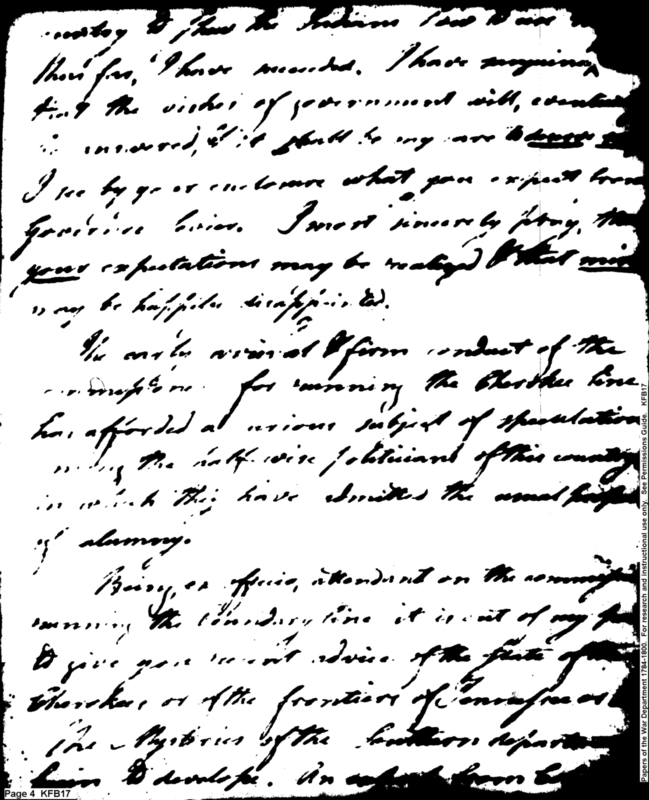 to shew the Indians how to use
thus far, I have succeeded. I have
that the wishes of government will,
answered, & it shall be my care to
I see by your enclosure what you expect from
I most sincerely pray,
your expectations may be realized & that
may be happily disappointed.
The early arrival & firm conduct of the
for running the Cherokee line
has afforded a curious subject of speculation
among the half-wise politicians of this country
in which they have admitted the usual
of calumny.
Being, ex officio, attendant on the
running the boundary line it is out of my
to give you recent advice of the State of the
Cherokees or of the frontiers of Tennessee
The Mysteries of the Southern
begin to develope. An from
Page 4 KFB17
Papers of the War Department 1784-1800. For research and instructional use only. See Permissions Guide. KFB17